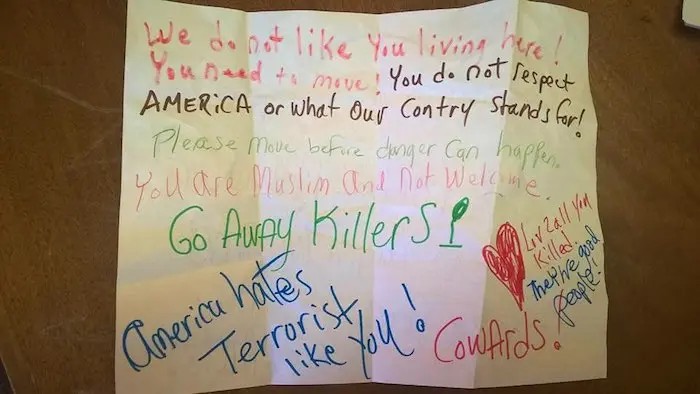 We do not like You living here!
You need to move! You do not respect
AMERiCA or what Our Contry Stands for!
Please Move before danger Can happen.
You are Muslim And Not Welcome.
Go AwAy KillerS!
America hates
Terrorist
like You!
Luv 2 all You
Killed.
They're good
people!
CowArds!